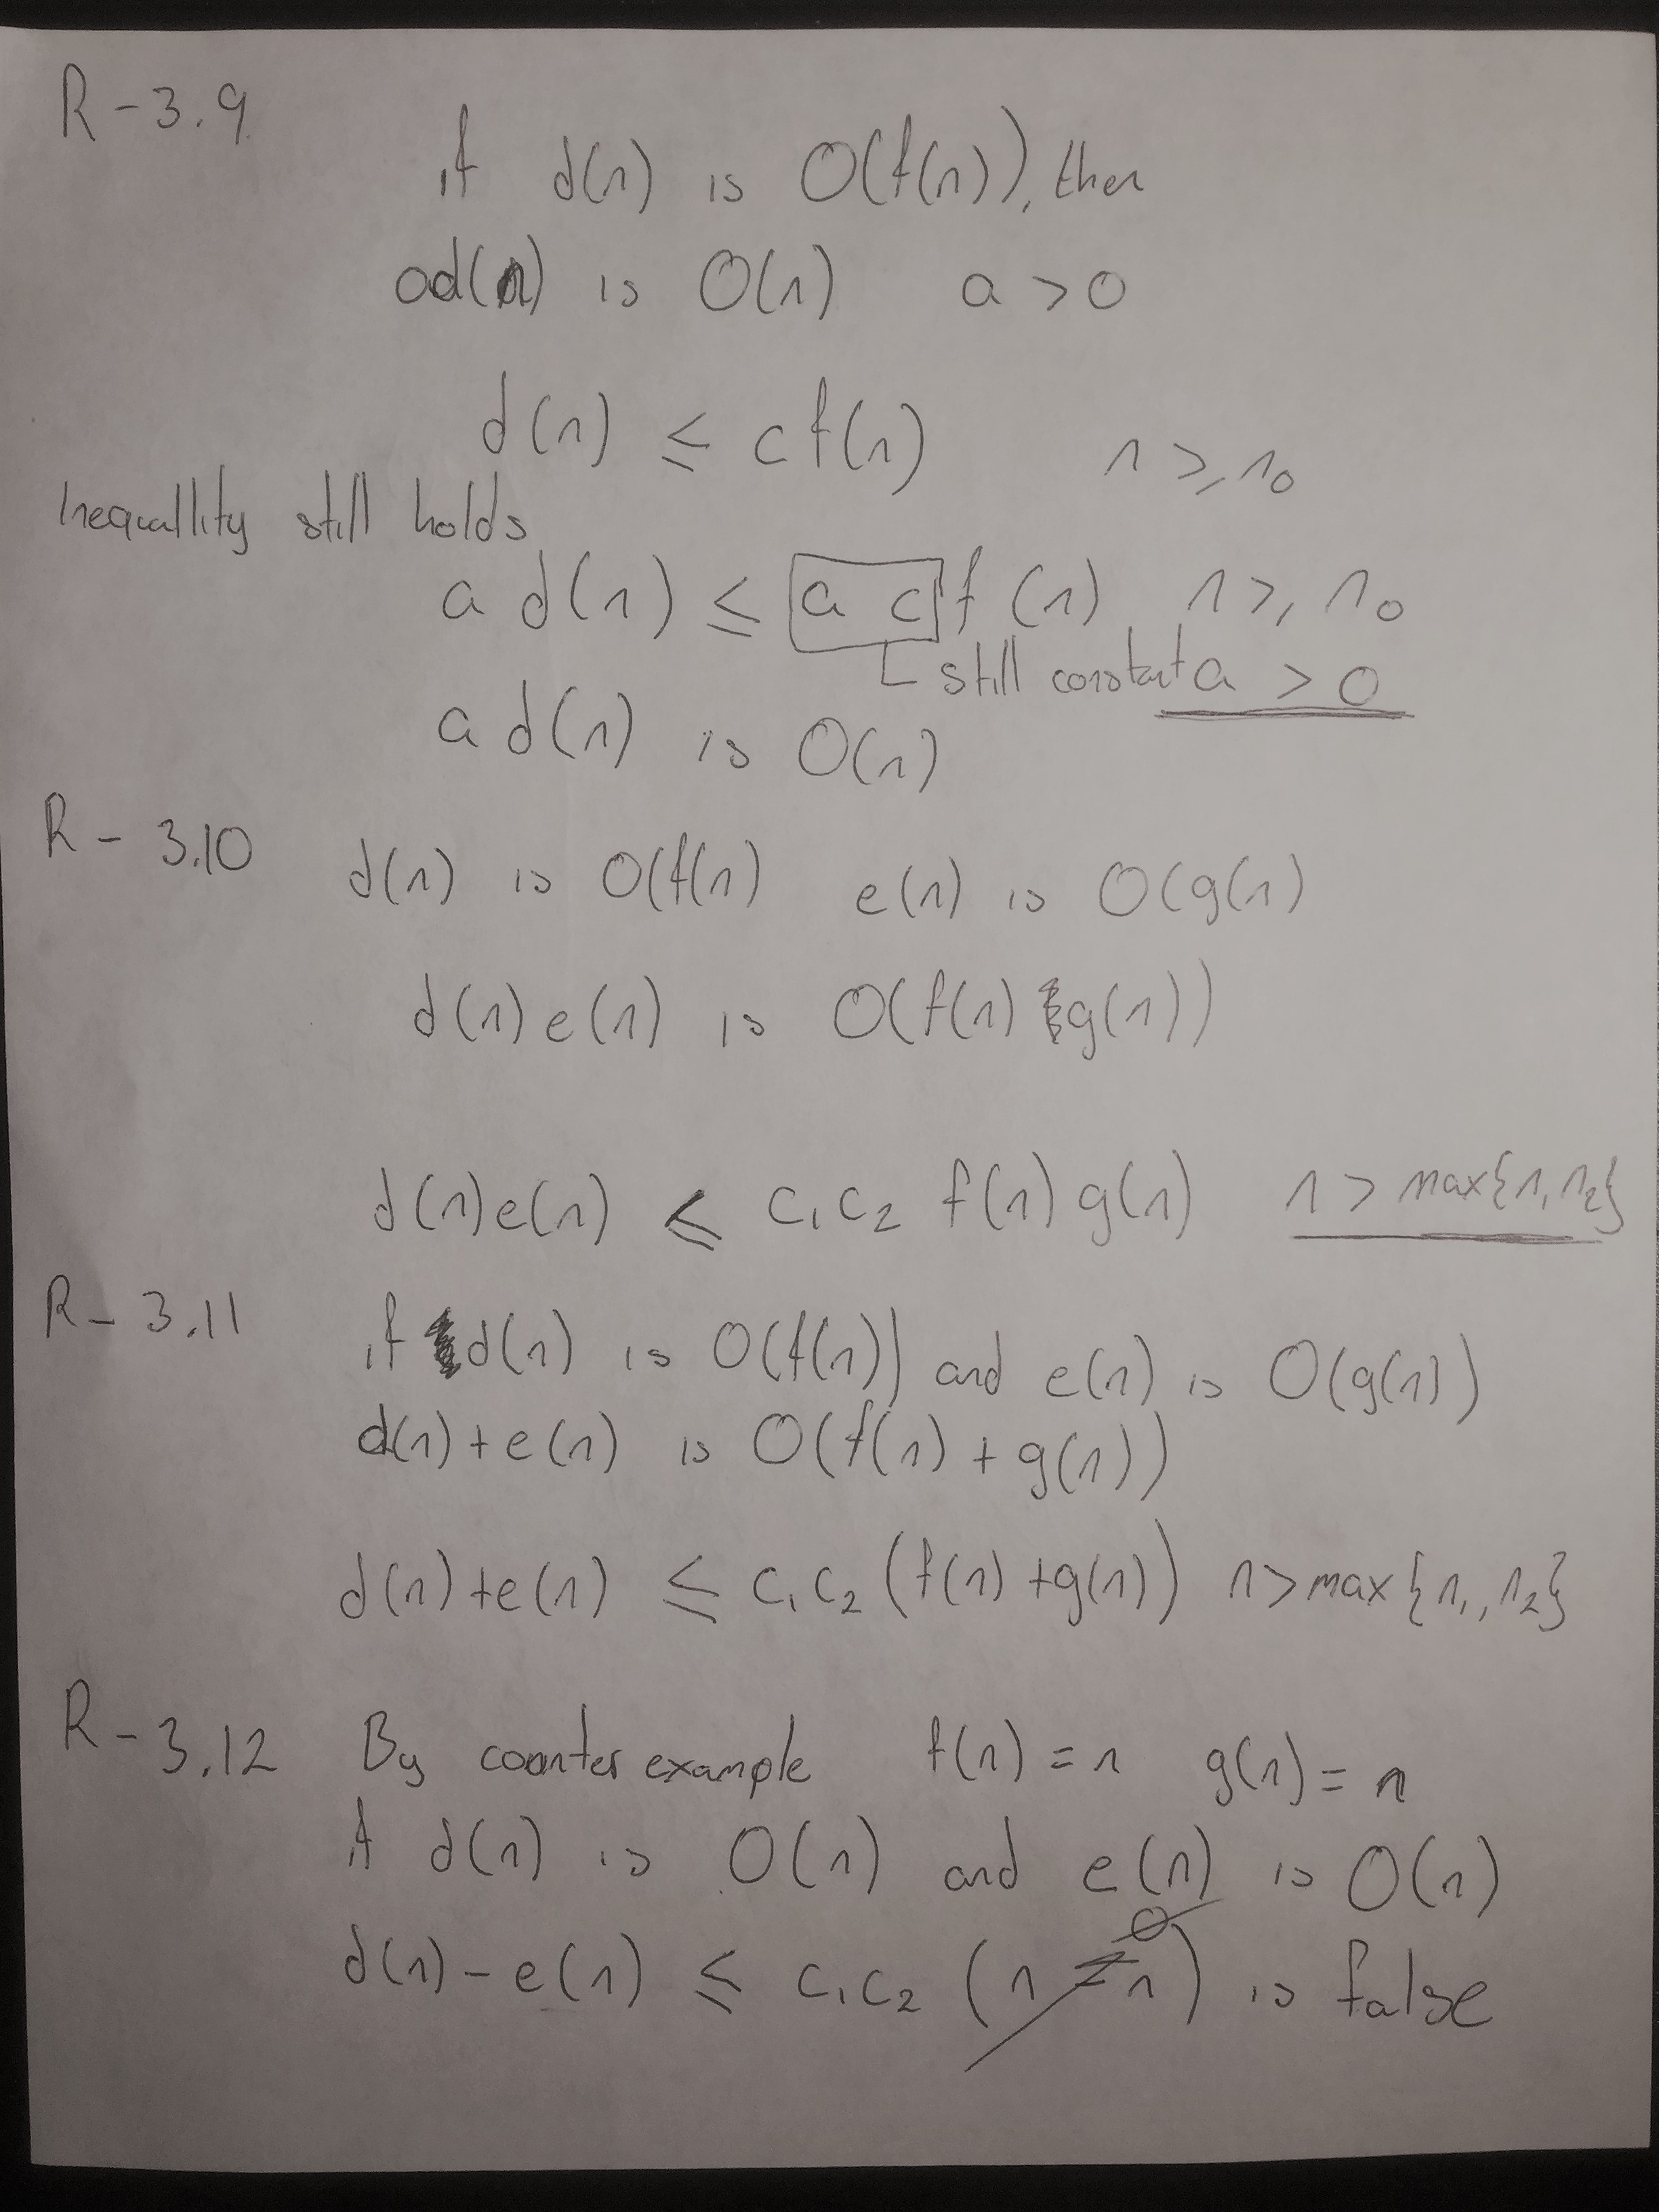 R-3.9
if d(n) is O(f(n)), then
ad(n) is O(n) a > 0
d(n) ≤ c f(n) n ≥ n₀
Inequallity still holds
a d(n) ≤ a c f(n) n ≥ n₀
still constant a > 0
a d(n) is O(n)
R-3.10 d(n) is O(f(n) e(n) is O(g(n)
d(n)e(n) is O(f(n) g(n))
d(n)e(n) ≤ c₁c₂ f(n)g(n) n > max{n₁n₂}
R-3.11 if d(n) is O(f(n)) and e(n) is O(g(n))
d(n)+e(n) is O(f(n)+g(n))
d(n)+e(n) ≤ c₁c₂(f(n)+g(n)) n>max{n₁,n₂}
R-3.12 By counter example f(n)=n g(n)=n
if d(n) is O(n) and e(n) is O(n)
d(n)-e(n) ≤ c₁c₂ (n-n) 0 is false